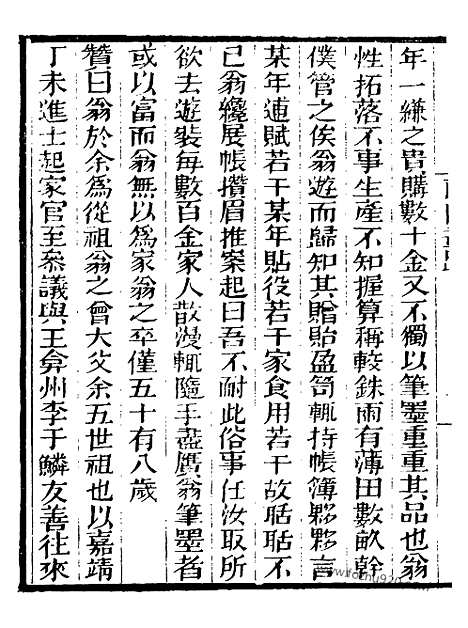 年一縑之貴購數十金又不獨以筆墨重重其品也翁
性拓落不事生產不知握算稱較銖兩有薄田數畝幹
僕管之俟翁遊而歸知其贈貽盈笥輒持帳簿夥夥言
某年逋賦若干某年貼役若干家食用若干故聒聒不
已翁纔展帳攢眉推案起曰吾不耐此俗事任汝取所
欲去遊裝每數百金家人散漫輒隨手盡贗翁筆墨者
或以富而翁無以爲家翁之卒僅五十有八歲
贊曰翁於余爲從祖翁之曾大父余五世祖也以嘉靖
丁未進士起家官至叅議與王弇州李于鱗友善往來